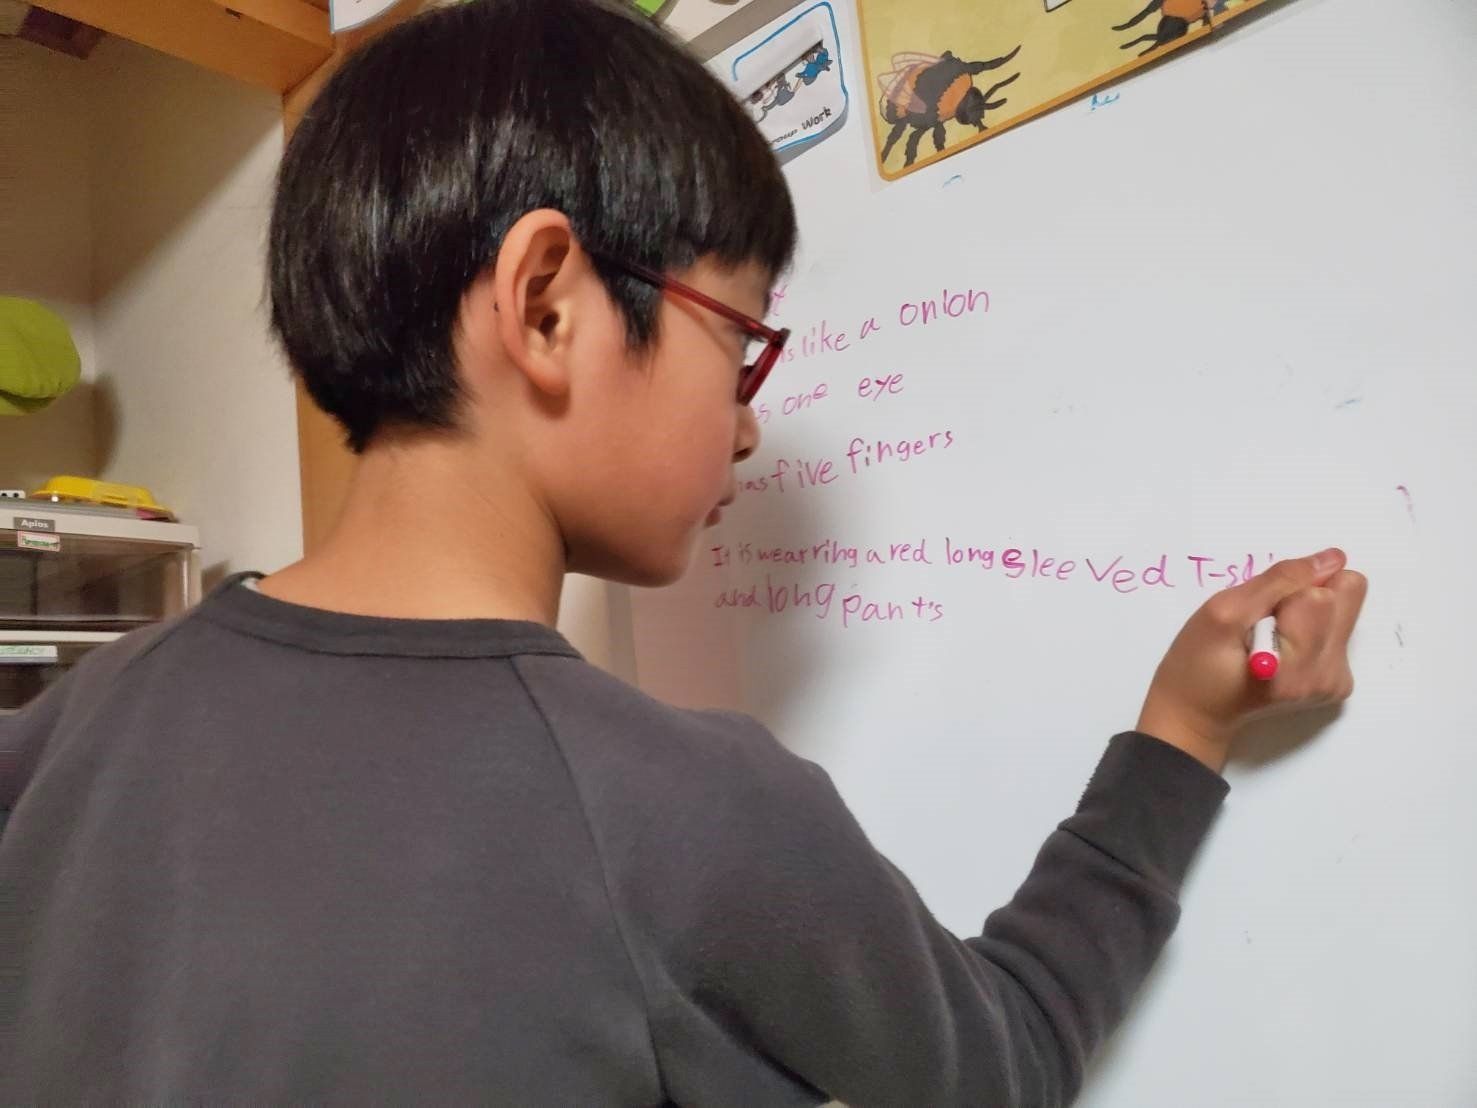 Work
like a onion
one eye
five fingers
It is wearring a red long sleeved T-sh
and long pant's
Aplos